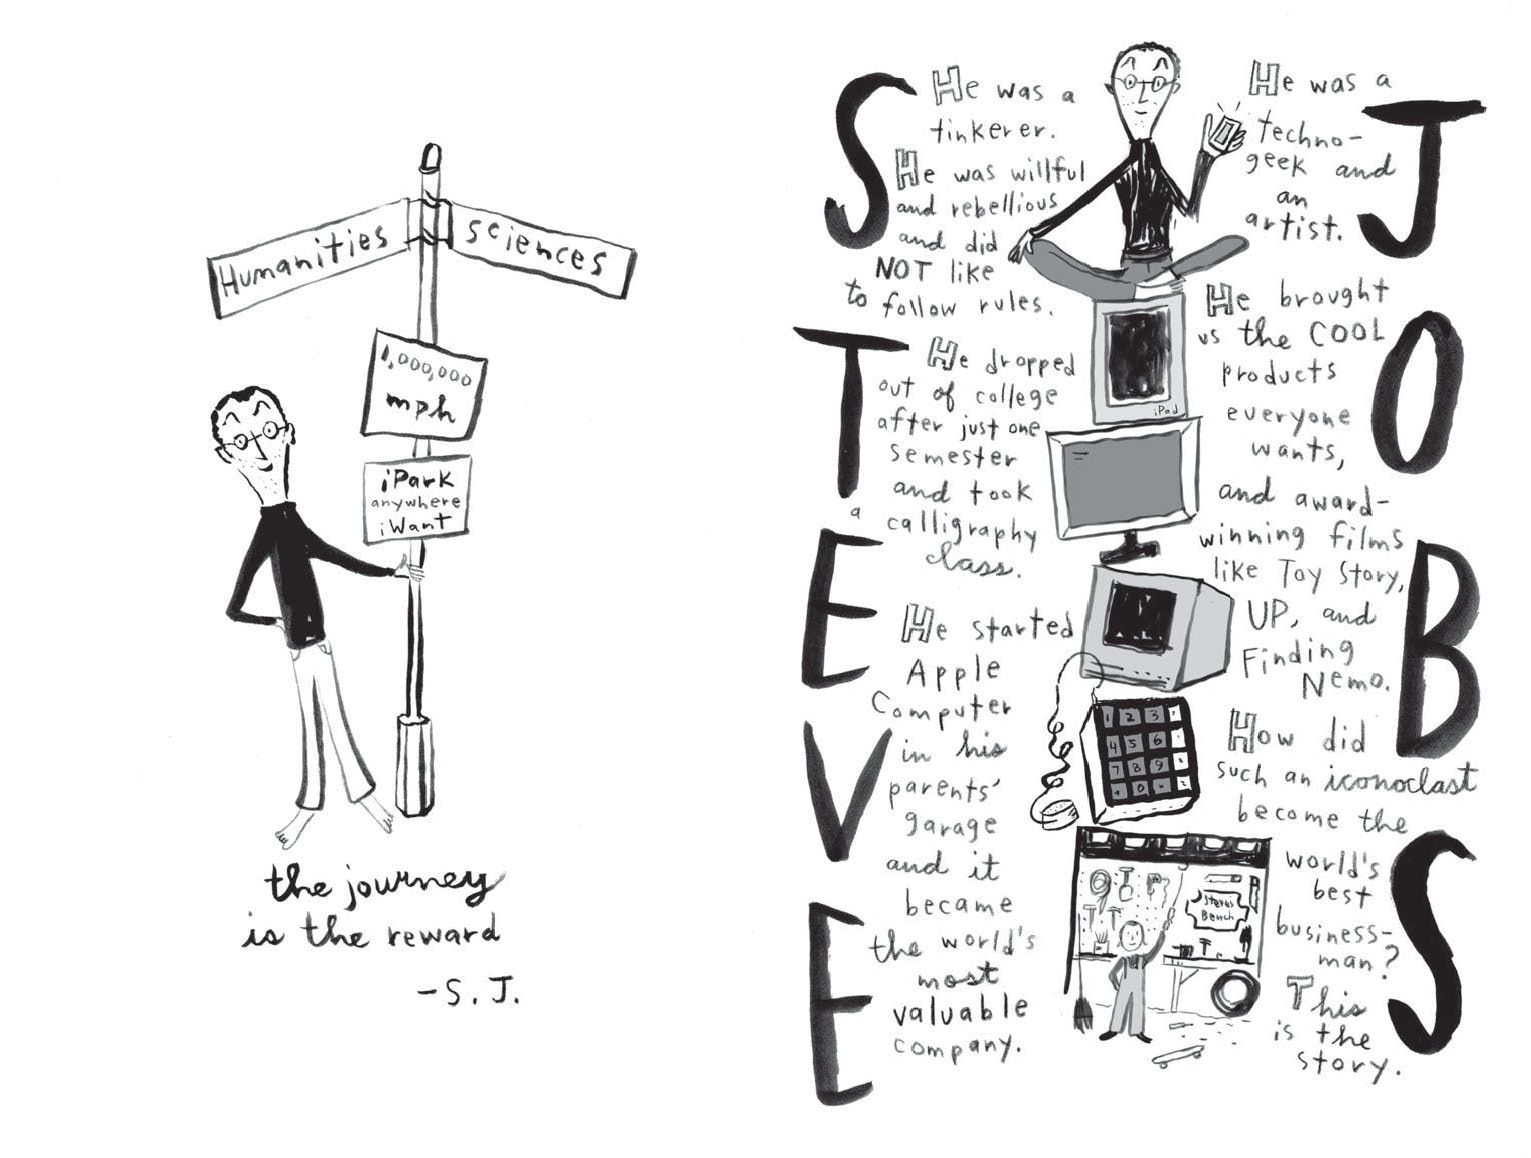 Humanities
sciences
1,000,000
mph
iPark
anywhere
iWant
the journey
is the reward
-S. J.
STEVE
JOBS
He was a
tinkerer.
He was willful
and rebellious
and did
NOT like
to follow rules.
He dropped
out of college
after just one
semester
and took
a calligraphy
class.
He started
Apple
Computer
in his
parents'
garage
and it
became
the world's
most
valuable
company.
He was a
techno-
geek and
an
artist.
He brought
us the COOL
products
everyone
wants,
and award-
winning films
like Toy Story,
UP, and
Finding
Nemo.
How did
such an iconoclast
become the
world's
best
business-
man?
This
is the
story.
iPad
1 2 3
4 5 6
7 8 9
0
Steve's
Bench